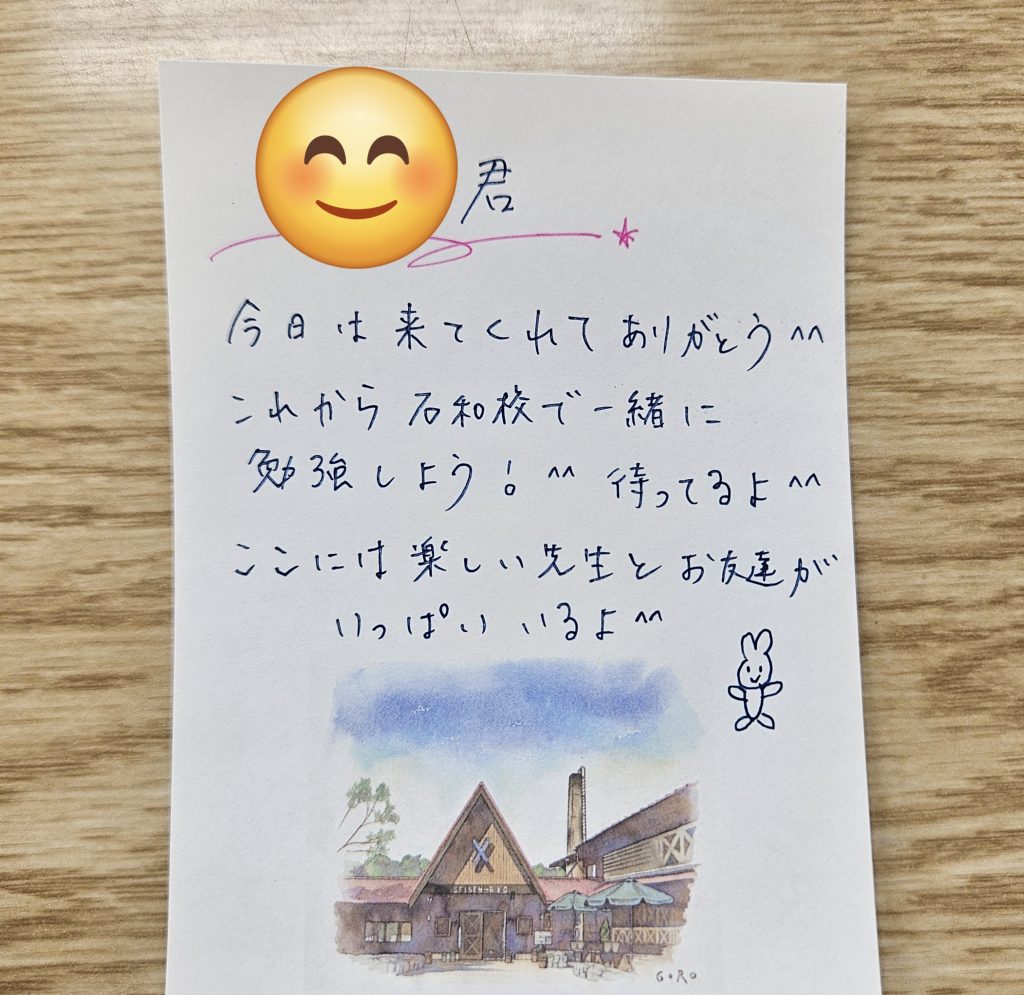 君
今日は来てくれてありがとう^^
これから石和校で一緒に
勉強しよう！^^ 待ってるよ^^
ここには楽しい先生とお友達が
いっぱいいるよ^^
SEISEN-RYO
GORO